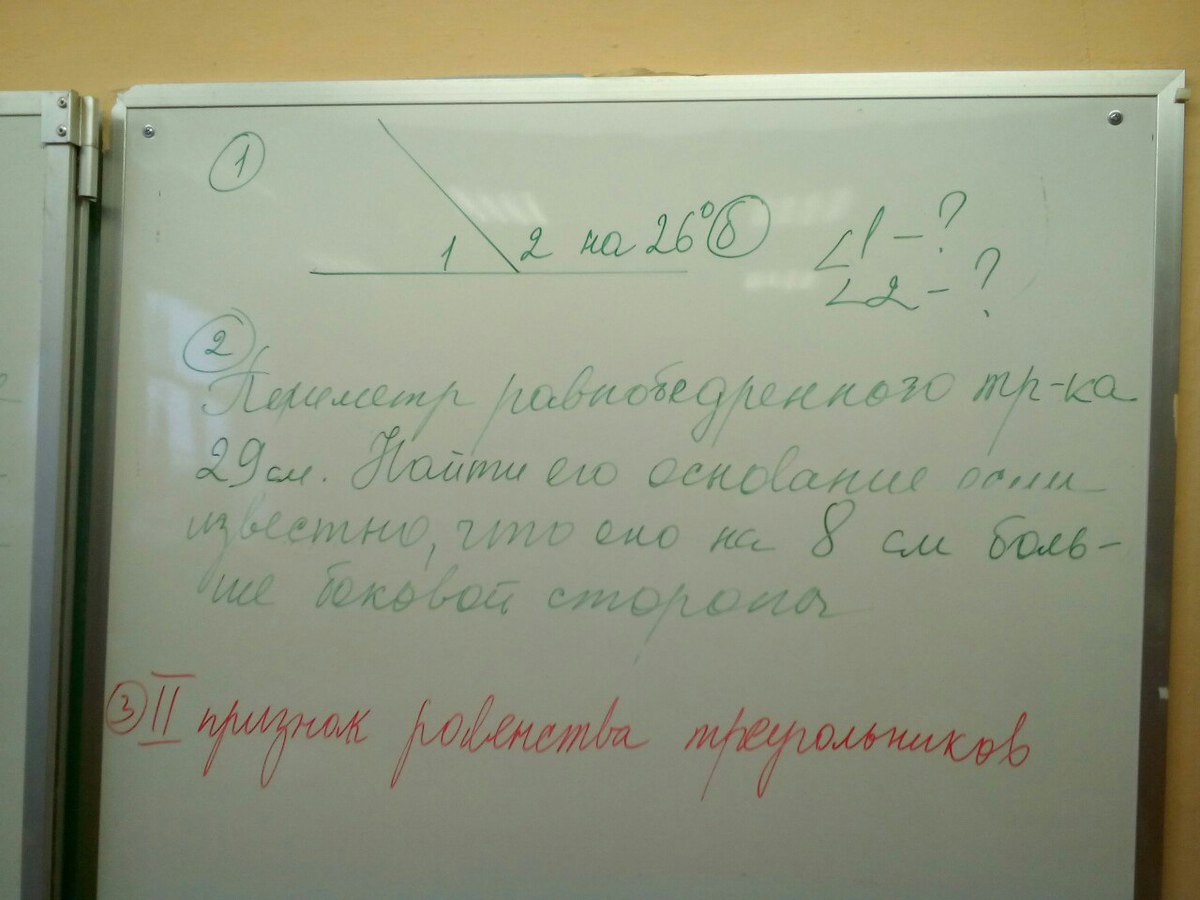 1
1 2 на 26° б ∠1 - ?
∠2 - ?
2
Периметр равнобедренного тр-ка
29 см. Найти его основание если
известно, что оно на 8 см боль-
ше боковой стороны
3 II признак равенства треугольников